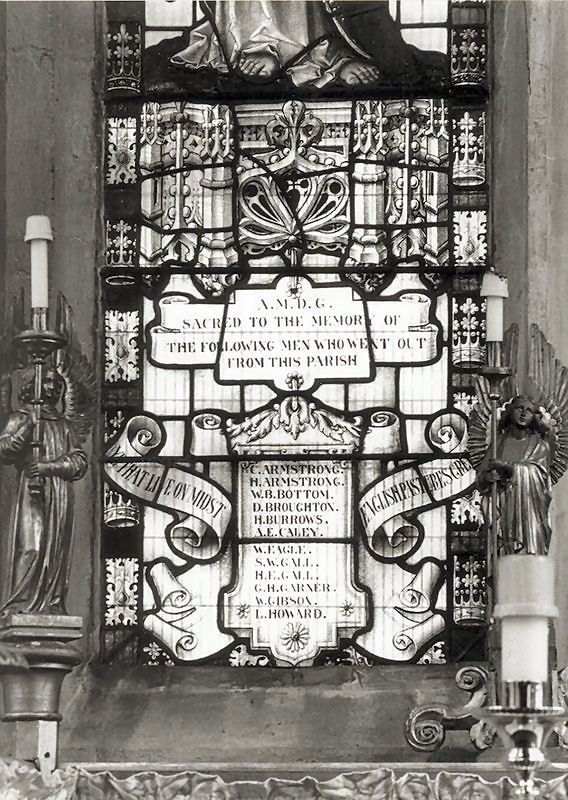 A.M.D.G.
SACRED TO THE MEMORY OF
THE FOLLOWING MEN WHO WENT OUT
FROM THIS PARISH
THAT LIVE ON MIDST
ENGLISH PASTURES GRE
C. ARMSTRONG.
H. ARMSTRONG.
W. B. BOTTOM.
D. BROUGHTON.
H. BURROWS.
A. E. CALEY.
W. EAGLE.
S. W. GALL.
H. E. GALL.
G. H. GARNER.
W. GIBSON.
L. HOWARD.